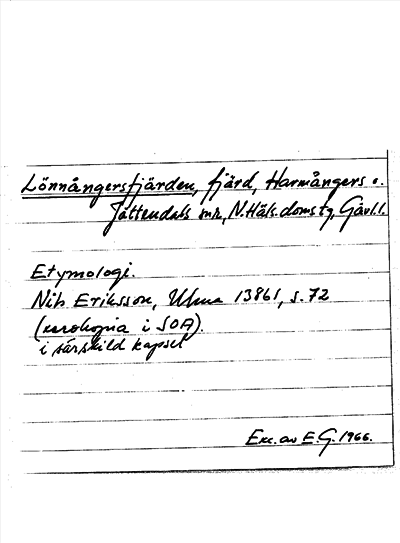 Lönnångersfjärden, fjärd, Harmångers o.
Jättendals snr, N.Häls. domstg, Gävl.l.
Etymologi.
Nils Eriksson, Uluma 13861, s. 72
(xerokopia i SOA).
i särskild kapsel
Exc. av E.G. 1966.